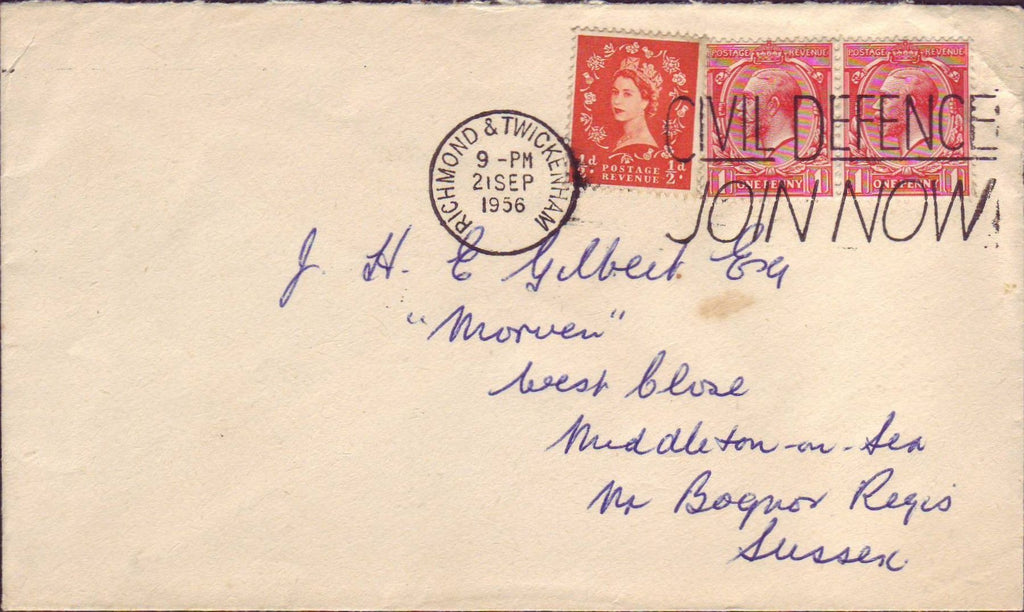 RICHMOND & TWICKENHAM
9 - PM
21 SEP
1956
½d ½d
POSTAGE
REVENUE
POSTAGE REVENUE
1 ONE PENNY 1
POSTAGE REVENUE
1 ONE PENNY 1
CIVIL DEFENCE
JOIN NOW!
J. H. C Gilbert Esq
"Morven"
West Close
Middleton-on-Sea
Nr Bognor Regis
Sussex.